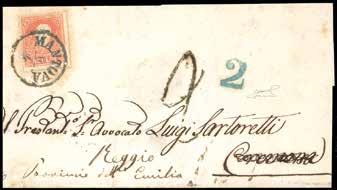 MANTOVA
2 2
Al Prestantmo Sr. Avvocato Luigi Sartoretti
Reggio
Provincia dell' Emilia